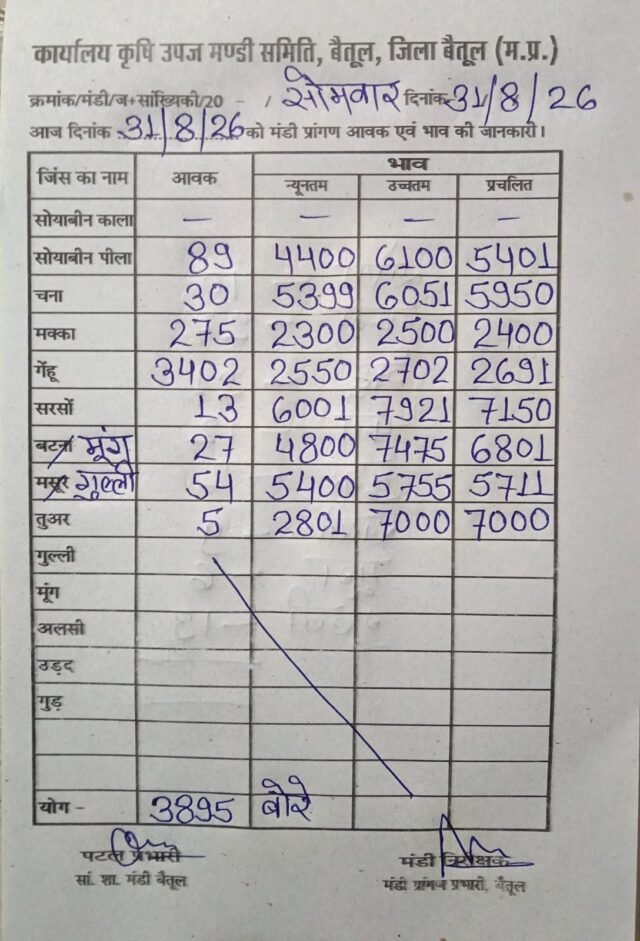 कार्यालय कृषि उपज मण्डी समिति, बैतूल, जिला बैतूल (म.प्र.)
क्रमांक/मंडी/ज+सांख्यिकी/20 - / सोमवार दिनांक 31/8/26
आज दिनांक 31/8/26 को मंडी प्रांगण आवक एवं भाव की जानकारी।
जिंस का नाम आवक भाव
न्यूनतम उच्चतम प्रचलित
सोयाबीन काला — — — —
सोयाबीन पीला 89 4400 6100 5401
चना 30 5399 6051 5950
मक्का 275 2300 2500 2400
गेंहू 3402 2550 2702 2691
सरसों 13 6001 7921 7150
बटना मूंग 27 4800 7475 6801
मसूर गुल्ली 54 5400 5755 5711
तुअर 5 2801 7000 7000
गुल्ली
मूंग
अलसी
उड़द
गुड़
योग - 3895 बोरे
पटल प्रभारी मंडी निरीक्षक
सां. शा. मंडी बैतूल मंडी प्रांगन प्रभारी, बैतूल